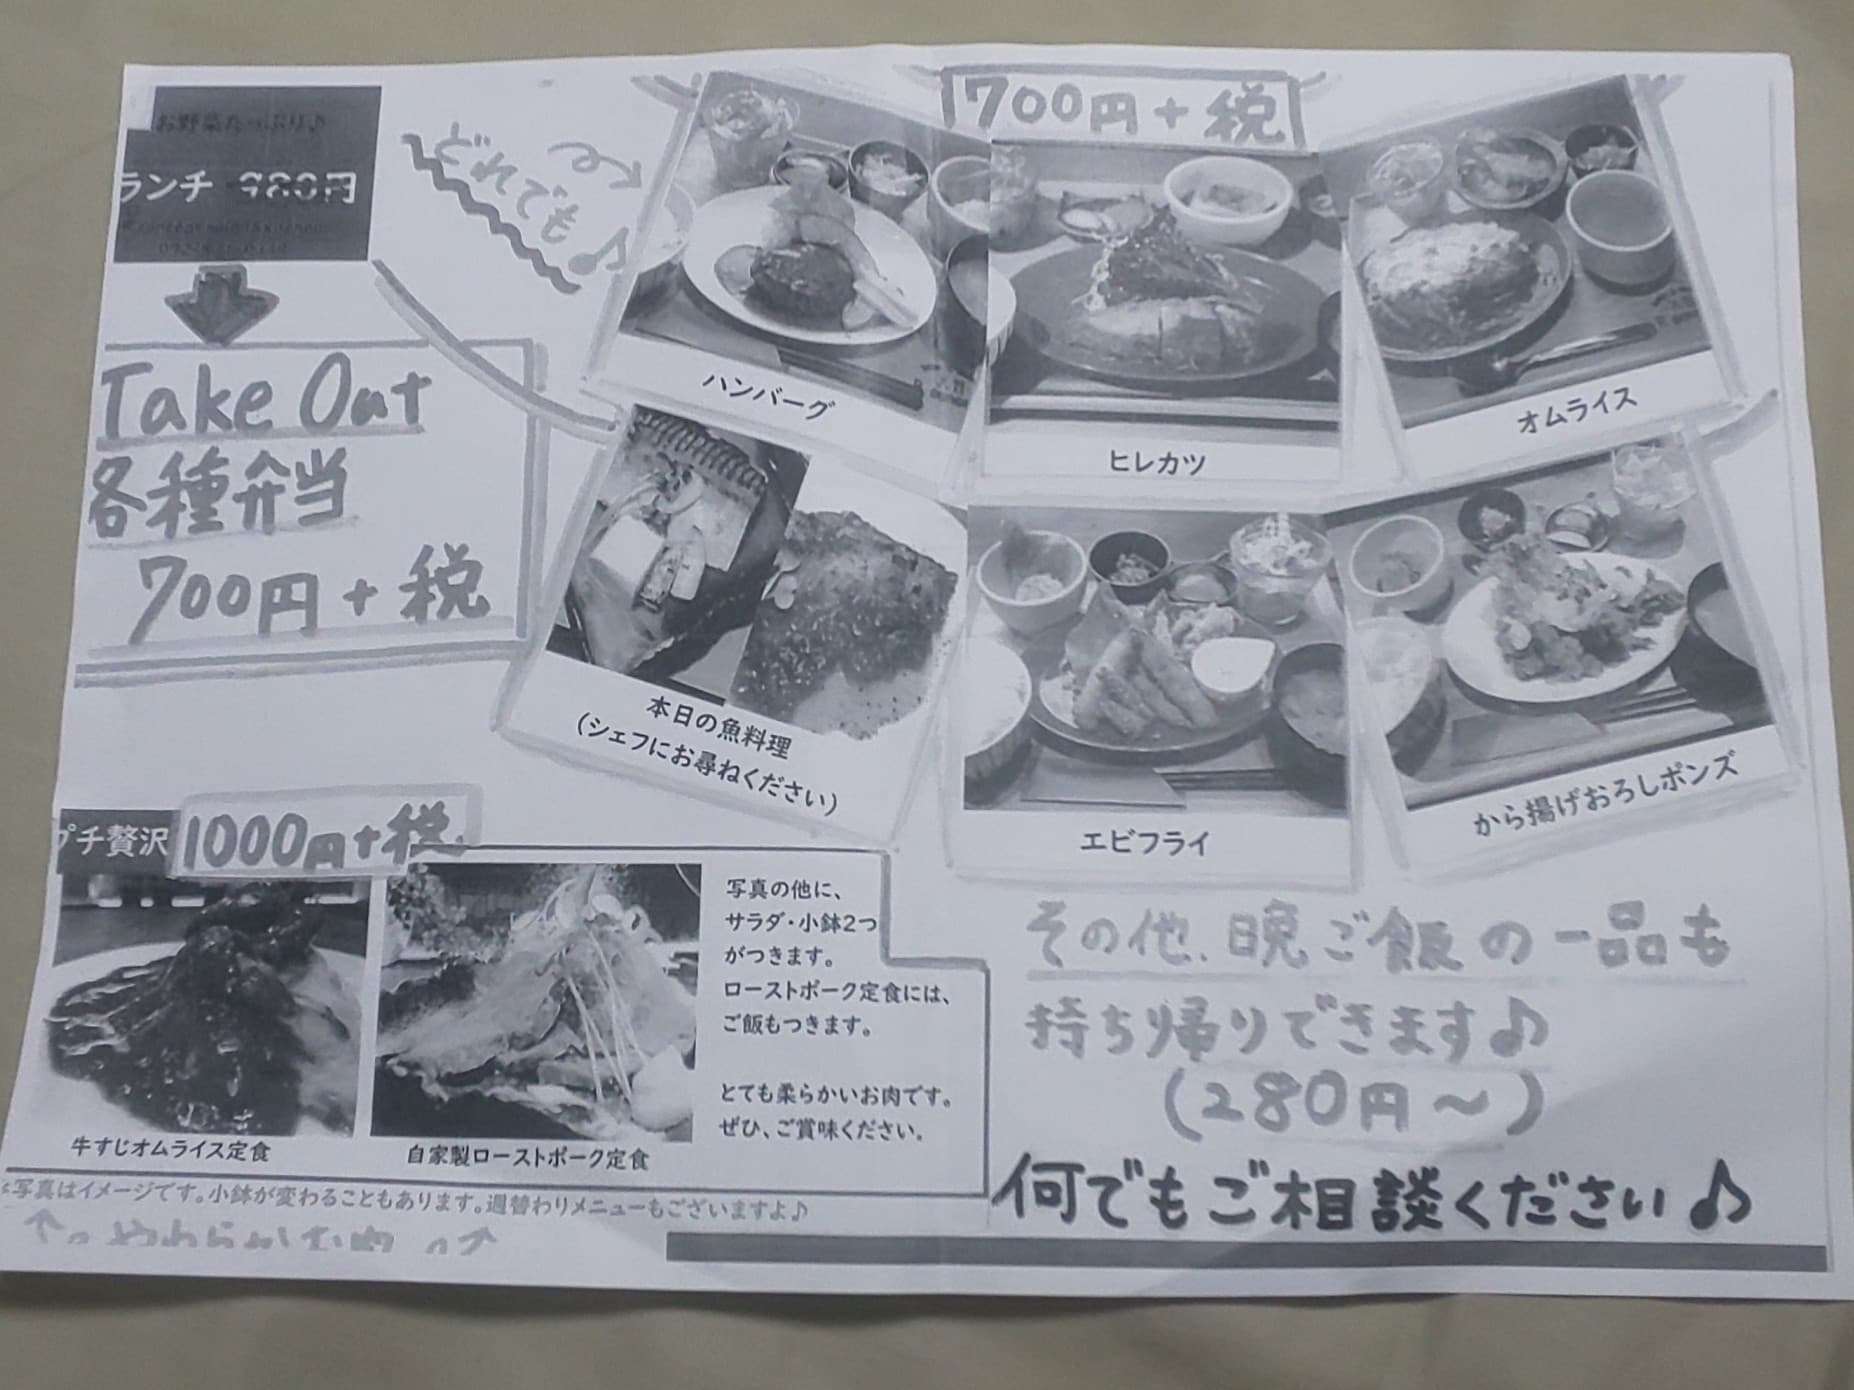 お野菜たっぷり♪
ランチ 980円
どれでも♪
700円+税
Take Out
各種弁当
700円+税
ハンバーグ
ヒレカツ
オムライス
本日の魚料理
(シェフにお尋ねください)
エビフライ
から揚げおろしポンズ
プチ贅沢 1000円+税
写真の他に、
サラダ・小鉢2つ
がつきます。
ローストポーク定食には、
ご飯もつきます。
とても柔らかいお肉です。
ぜひ、ご賞味ください。
牛すじオムライス定食
自家製ローストポーク定食
※写真はイメージです。小鉢が変わることもあります。週替わりメニューもございますよ♪
その他、晩ご飯の一品も
持ち帰りできます♪
(280円~)
何でもご相談ください♪